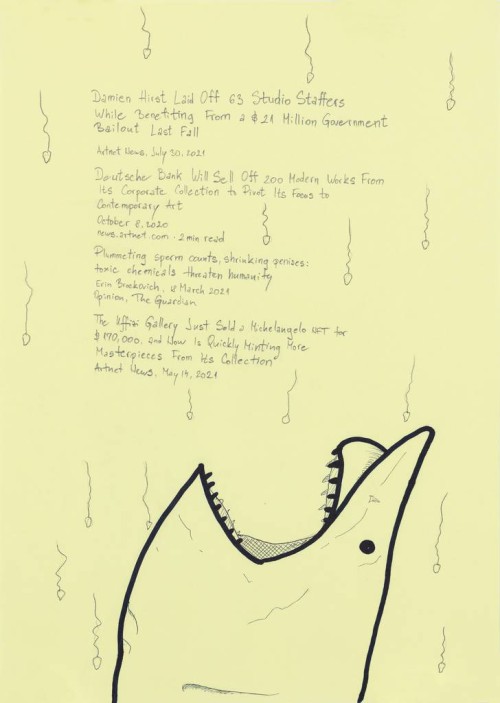 Damien Hirst Laid Off 63 Studio Staffers
While Benefiting From a $21 Million Government
Bailout Last Fall
Artnet News, July 30, 2021
Deutsche Bank Will Sell Off 200 Modern Works From
Its Corporate Collection to Pivot Its Focus to
Contemporary Art
October 8, 2020
news.artnet.com · 2 min read
Plummeting sperm counts, shrinking penises:
toxic chemicals threaten humanity
Erin Brockovich, 18 March 2021
Opinion, The Guardian
The Uffizi Gallery Just Sold a Michelangelo NFT for
$170,000, and Now Is Quickly Minting More
Masterpieces From Its Collection
Artnet News, May 14, 2021